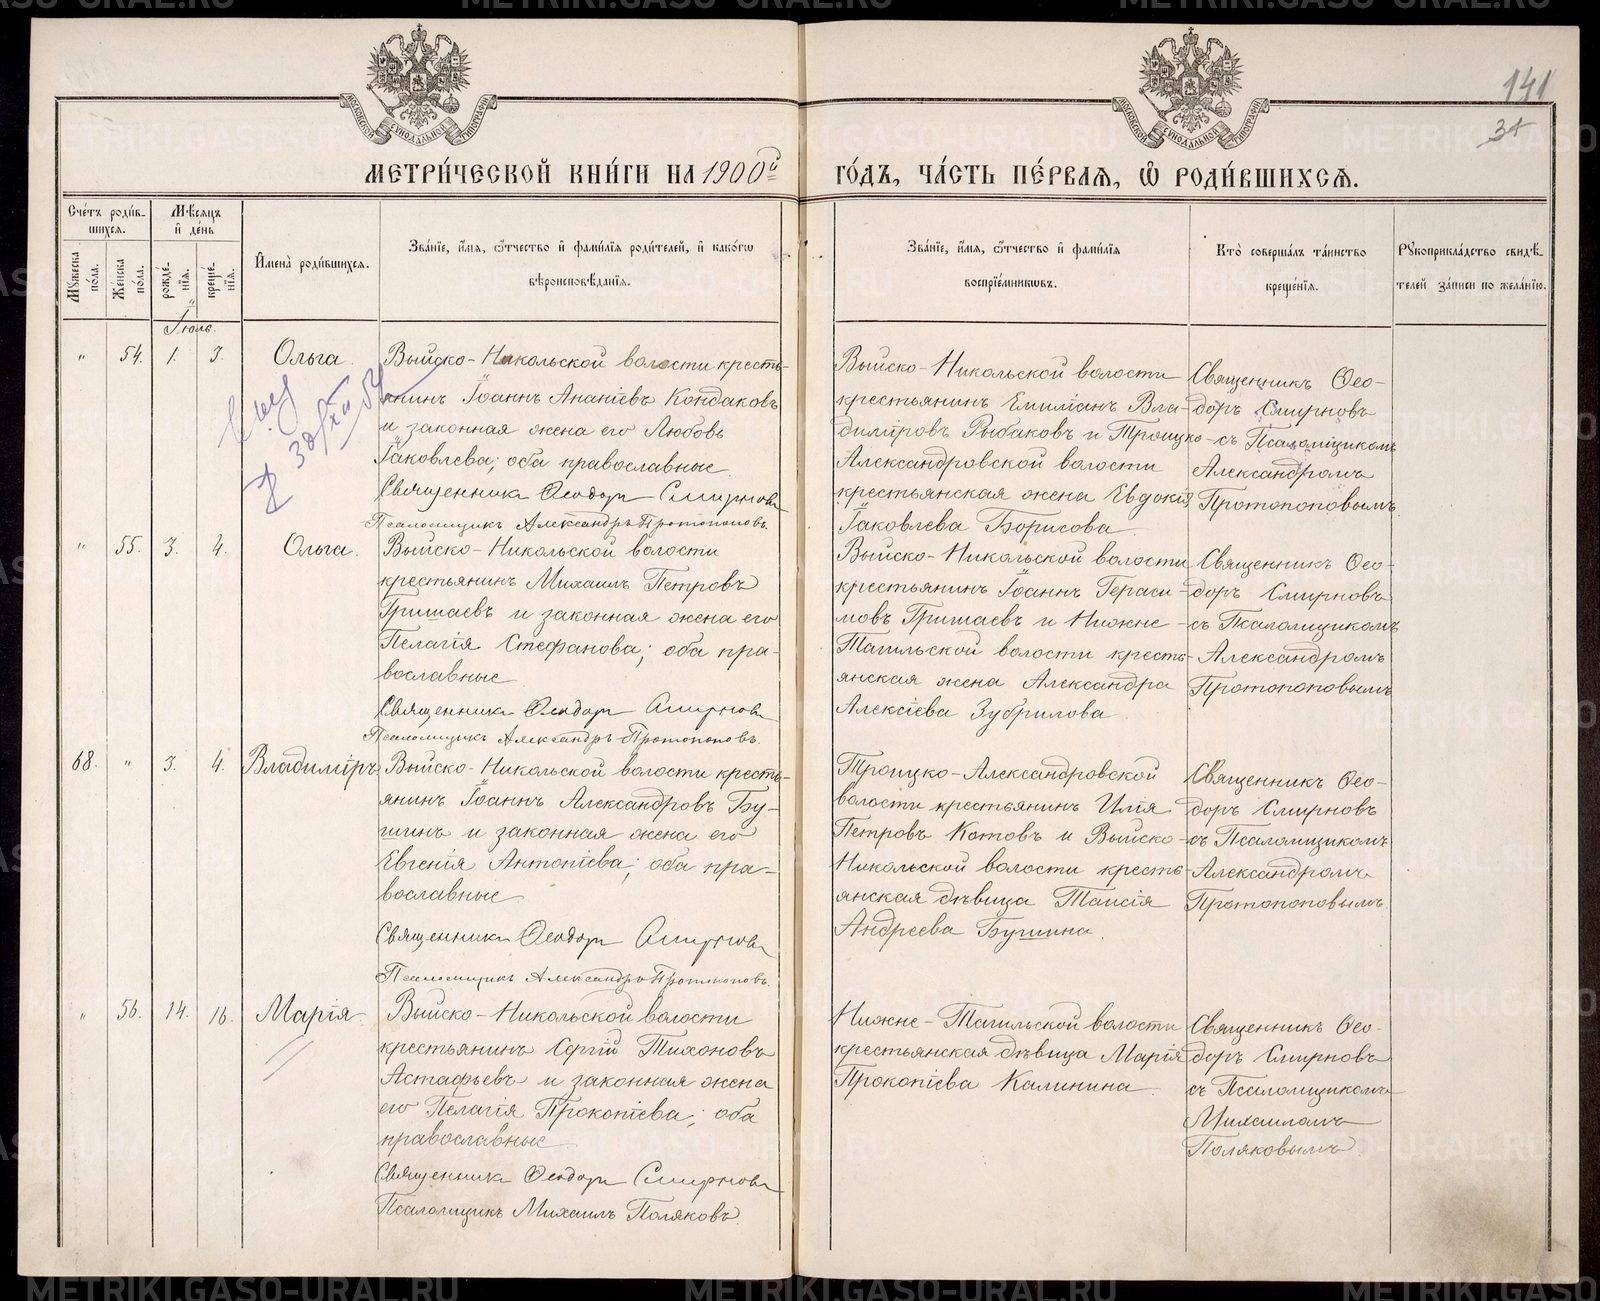 141
31
МЕТРИ́ЧЕСКОЙ КНИ́ГИ НА 1900й
ГО́ДЪ, ЧА́СТЬ ПЕ́РВАѦ, Ѿ РОДИ́ВШИХСѦ.
Сче́тъ роди́в-
шихся.
Мꙋжеска по́ла.
Же́нска по́ла.
Мѣ́сяцъ
и҆ де́нь
рожде́-
нїя.
креще́-
нїя.
И҆мена̀ роди́вшихся.
Зва́нїе, и҆́мя, ѻ҆́тчество и҆ фами́лїя роди́телей, и҆ како́гѡ
вѣроисповѣ́данїя.
Зва́нїе, и҆́мя, ѻ҆́тчество и҆ фами́лїя
воспрїе́мникѡвъ.
Кто̀ соверша́лъ та́инство
креще́нїя.
Рꙋкоприкла́дство свидѣ́-
телей за́писи по жела́нїю.
Іюль.
" 54. 1. 3. Ольга
Выйско-Никольской волости кресть-
янинъ Іоаннъ Ананіевъ Кондаковъ
и законная жена его Любовь
Іаковлева; оба православные.
Священникъ Ѳеодоръ Смирновъ
Псаломщикъ Александръ Протопоповъ.
Выйско-Никольской волости
крестьянинъ Емиліанъ Вла-
диміровъ Рыбаковъ и Троицко-
Александровской волости
крестьянская жена Евдокія
Іаковлева Борисова
Священникъ Ѳео-
доръ Смирновъ
съ Псаломщикомъ
Александромъ
Протопоповымъ.
" 55. 3. 4. Ольга.
Выйско-Никольской волости
крестьянинъ Михаилъ Петровъ
Гришаевъ и законная жена его
Пелагія Стефанова; оба пра-
вославные
Священникъ Ѳеодоръ Смирновъ
Псаломщикъ Александръ Протопоповъ.
Выйско-Никольской волости
крестьянинъ Іоаннъ Гераси-
мовъ Гришаевъ и Нижне-
Тагильской волости кресть-
янская жена Александра
Алексіева Зубрилова
Священникъ Ѳео-
доръ Смирновъ
съ Псаломщикомъ
Александромъ
Протопоповымъ
68. " 3. 4. Владиміръ
Выйско-Никольской волости кресть-
янинъ Іоаннъ Александровъ Бу-
шинъ и законная жена его
Евгенія Антоніева; оба пра-
вославные
Священникъ Ѳеодоръ Смирновъ
Псаломщикъ Александръ Протопоповъ.
Троицко-Александровской
волости крестьянинъ Илія
Петровъ Котовъ и Выйско-
Никольской волости кресть-
янская дѣвица Таисія
Андреева Бушина.
Священникъ Ѳео-
доръ Смирновъ
съ Псаломщикомъ
Александромъ
Протопоповымъ.
" 56. 14. 16. Марія
Выйско-Никольской волости
крестьянинъ Сергій Тихоновъ
Астафьевъ и законная жена
его Пелагія Прокопіева; оба
православные
Священникъ Ѳеодоръ Смирновъ
Псаломщикъ Михаилъ Поляковъ.
Нижне-Тагильской волости
крестьянская дѣвица Марія
Прокопіева Калинина
Священникъ Ѳео-
доръ Смирновъ
съ Псаломщикомъ
Михаиломъ
Поляковымъ.
METRIKI.GASO-URAL.RU